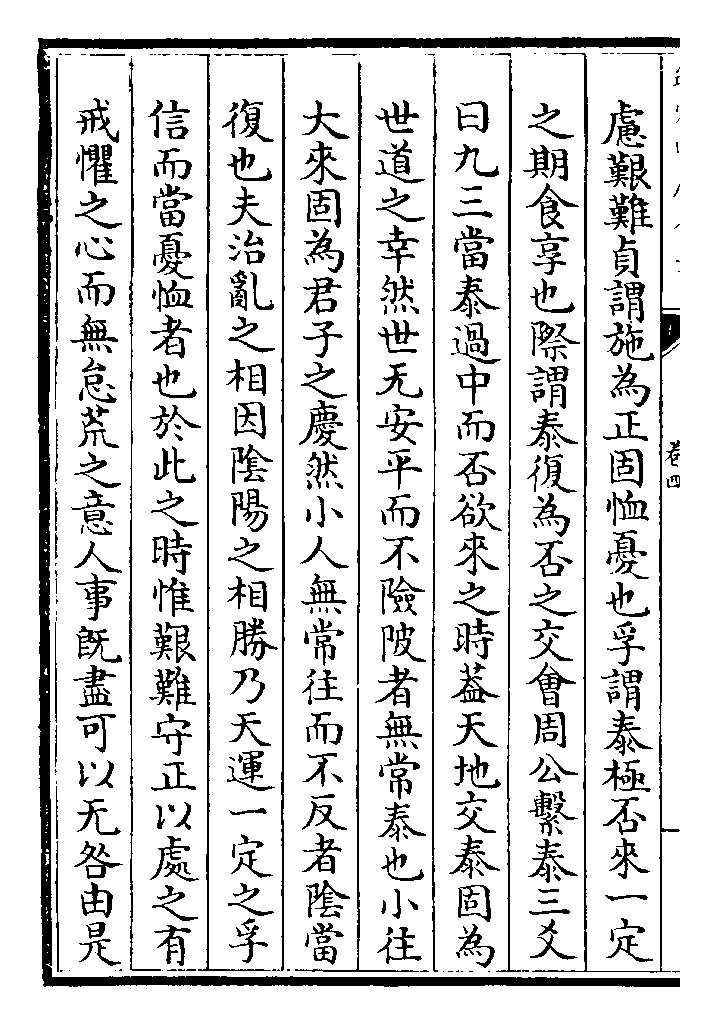 慮艱難貞謂施為正固恤憂也孚謂泰極否來一定
之期食享也際謂泰復為否之交會周公繫泰三爻
曰九三當泰過中而否欲來之時葢天地交泰固為
世道之幸然世无安平而不險陂者無常泰也小往
大來固為君子之慶然小人無常往而不反者陰當
復也夫治亂之相因陰陽之相勝乃天運一定之孚
信而當憂恤者也於此之時惟艱難守正以處之有
戒懼之心而無怠荒之意人事既盡可以无咎由是
卷四